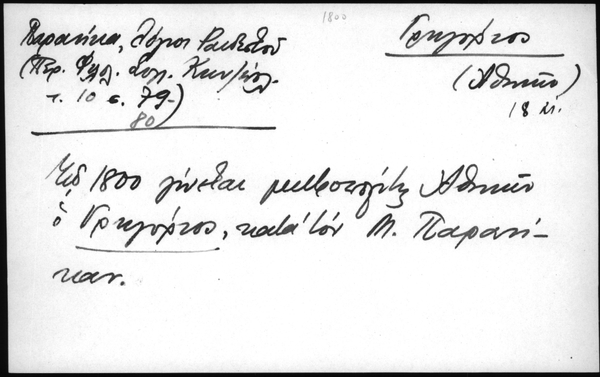 1800
Παρανίκα, Λόγιοι Ραιδεστοῦ
(Περ. Φιλ. Συλ. Κων/πόλ.
τ. 10 σ. 79-
80)
Γρηγόριος
(Ἀθηνῶν)
18 αἰ.
Τῷ 1800 γίνεται μητροπολίτης Ἀθηνῶν
ὁ Γρηγόριος, κατὰ τὸν Μ. Παρανί-
καν.